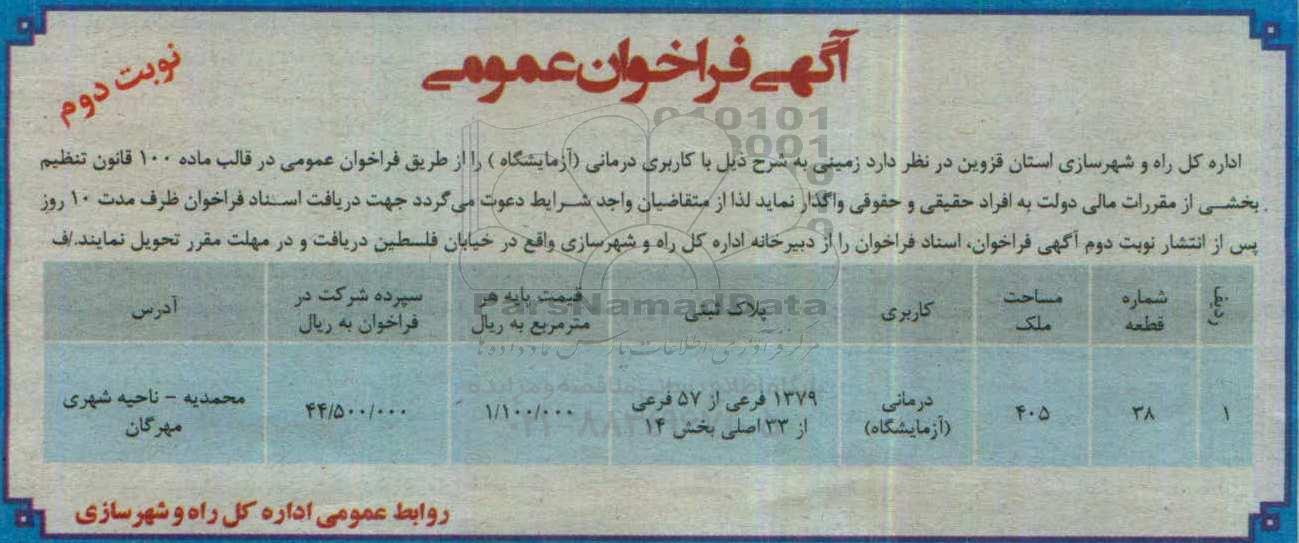 آگهی فراخوان عمومی
نوبت دوم
اداره کل راه و شهرسازی استان قزوین در نظر دارد زمینی به شرح ذیل با کاربری درمانی (آزمایشگاه ) را از طریق فراخوان عمومی در قالب ماده ۱۰۰ قانون تنظیم
بخشی از مقررات مالی دولت به افراد حقیقی و حقوقی واگذار نماید لذا از متقاضیان واجد شرایط دعوت می‌گردد جهت دریافت اسناد فراخوان ظرف مدت ۱۰ روز
پس از انتشار نوبت دوم آگهی فراخوان، اسناد فراخوان را از دبیرخانه اداره کل راه و شهرسازی واقع در خیابان فلسطین دریافت و در مهلت مقرر تحویل نمایند./ف
ردیف
شماره
قطعه
مساحت
ملک
کاربری
پلاک ثبتی
قیمت پایه هر
مترمربع به ریال
سپرده شرکت در
فراخوان به ریال
آدرس
۱
۳۸
۴۰۵
درمانی
(آزمایشگاه)
۱۳۷۹ فرعی از ۵۷ فرعی
از ۳۳ اصلی بخش ۱۴
۱/۱۰۰/۰۰۰
۴۴/۵۰۰/۰۰۰
محمدیه - ناحیه شهری
مهرگان
روابط عمومی اداره کل راه و شهرسازی
ParsNamadData